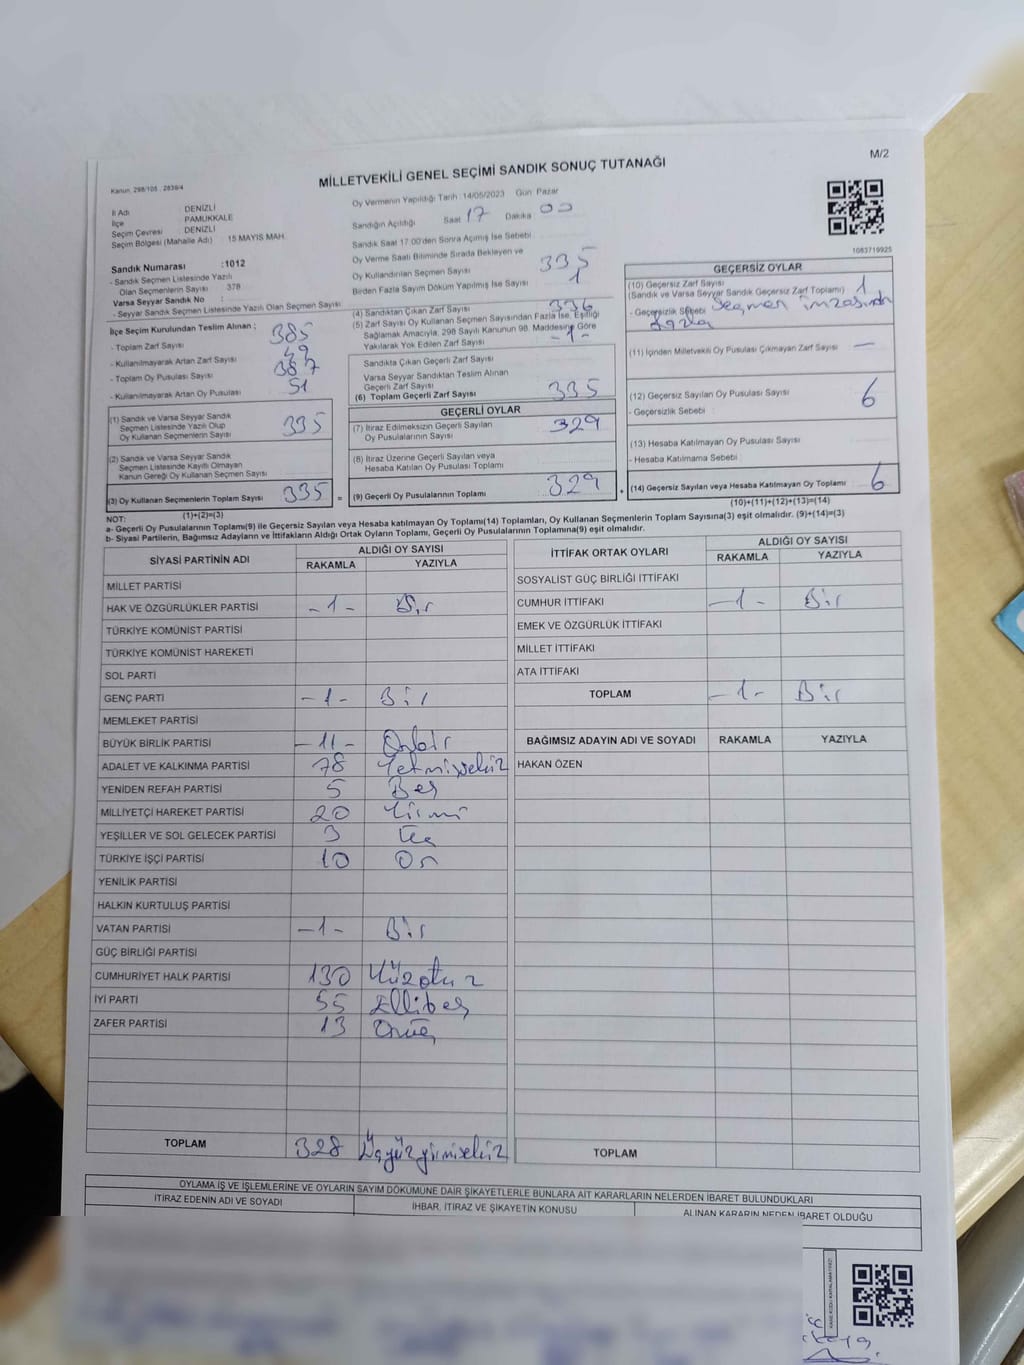 M/2
Kanun, 298/105 , 2839/4
MİLLETVEKİLİ GENEL SEÇİMİ SANDIK SONUÇ TUTANAĞI
İl Adı DENİZLİ
İlçe PAMUKKALE
Seçim Çevresi DENİZLİ
Seçim Bölgesi (Mahalle Adı) 15 MAYIS MAH.
Sandık Numarası :1012
- Sandık Seçmen Listesinde Yazılı
Olan Seçmenlerin Sayısı 378
Varsa Seyyar Sandık No :
- Seyyar Sandık Seçmen Listesinde Yazılı Olan Seçmen Sayısı :
İlçe Seçim Kurulundan Teslim Alınan ;
- Toplam Zarf Sayısı 385
- Kullanılmayarak Artan Zarf Sayısı 49
- Toplam Oy Pusulası Sayısı 387
- Kullanılmayarak Artan Oy Pusulası 51
(1) Sandık ve Varsa Seyyar Sandık
Seçmen Listesinde Yazılı Olup
Oy Kullanan Seçmenlerin Sayısı 335
(2) Sandık ve Varsa Seyyar Sandık
Seçmen Listesinde Kayıtlı Olmayan
Kanun Gereği Oy Kullanan Seçmen Sayısı
(3) Oy Kullanan Seçmenlerin Toplam Sayısı 335 =
(1)+(2)=(3)
Oy Vermenin Yapıldığı Tarih :14/05/2023 Gün :Pazar
Sandığın Açıldığı Saat 17 Dakika 00
Sandık Saat 17:00'den Sonra Açılmış İse Sebebi
Oy Verme Saati Bitiminde Sırada Bekleyen ve
Oy Kullandırılan Seçmen Sayısı 335
Birden Fazla Sayım Döküm Yapılmış İse Sayısı 1
(4) Sandıktan Çıkan Zarf Sayısı 336
(5) Zarf Sayısı Oy Kullanan Seçmen Sayısından Fazla İse, Eşitliği
Sağlamak Amacıyla, 298 Sayılı Kanunun 98. Maddesine Göre
Yakılarak Yok Edilen Zarf Sayısı -1-
Sandıkta Çıkan Geçerli Zarf Sayısı
Varsa Seyyar Sandıktan Teslim Alınan
Geçerli Zarf Sayısı
(6) Toplam Geçerli Zarf Sayısı 335
GEÇERLİ OYLAR
(7) İtiraz Edilmeksizin Geçerli Sayılan
Oy Pusulalarının Sayısı 329
(8) İtiraz Üzerine Geçerli Sayılan veya
Hesaba Katılan Oy Pusulası Toplamı
(9) Geçerli Oy Pusulalarının Toplamı 329 +
1083719925
GEÇERSİZ OYLAR
(10) Geçersiz Zarf Sayısı
(Sandık ve Varsa Seyyar Sandık Geçersiz Zarf Toplamı) 1
- Geçersizlik Sebebi Seçmen imzasından
fazla
(11) İçinden Milletvekili Oy Pusulası Çıkmayan Zarf Sayısı —
(12) Geçersiz Sayılan Oy Pusulası Sayısı 6
- Geçersizlik Sebebi
(13) Hesaba Katılmayan Oy Pusulası Sayısı
- Hesaba Katılmama Sebebi
(14) Geçersiz Sayılan veya Hesaba Katılmayan Oy Toplamı 6
(10)+(11)+(12)+(13)=(14)
NOT:
a- Geçerli Oy Pusulalarının Toplamı(9) ile Geçersiz Sayılan veya Hesaba katılmayan Oy Toplamı(14) Toplamları, Oy Kullanan Seçmenlerin Toplam Sayısına(3) eşit olmalıdır. (9)+(14)=(3)
b- Siyasi Partilerin, Bağımsız Adayların ve İttifakların Aldığı Ortak Oyların Toplamı, Geçerli Oy Pusulalarının Toplamına(9) eşit olmalıdır.
SİYASİ PARTİNİN ADI ALDIĞI OY SAYISI
RAKAMLA YAZIYLA
MİLLET PARTİSİ
HAK VE ÖZGÜRLÜKLER PARTİSİ -1- Bir
TÜRKİYE KOMÜNİST PARTİSİ
TÜRKİYE KOMÜNİST HAREKETİ
SOL PARTİ
GENÇ PARTİ -1- Bir
MEMLEKET PARTİSİ
BÜYÜK BİRLİK PARTİSİ -11- Onbir
ADALET VE KALKINMA PARTİSİ 78 Yetmişsekiz
YENİDEN REFAH PARTİSİ 5 Beş
MİLLİYETÇİ HAREKET PARTİSİ 20 Yirmi
YEŞİLLER VE SOL GELECEK PARTİSİ 3 Üç
TÜRKİYE İŞÇİ PARTİSİ 10 On
YENİLİK PARTİSİ
HALKIN KURTULUŞ PARTİSİ
VATAN PARTİSİ -1- Bir
GÜÇ BİRLİĞİ PARTİSİ
CUMHURİYET HALK PARTİSİ 130 Yüzotuz
İYİ PARTİ 55 Ellibeş
ZAFER PARTİSİ 13 Onüç
TOPLAM 328 Üçyüzyirmisekiz
İTTİFAK ORTAK OYLARI ALDIĞI OY SAYISI
RAKAMLA YAZIYLA
SOSYALİST GÜÇ BİRLİĞİ İTTİFAKI
CUMHUR İTTİFAKI -1- Bir
EMEK VE ÖZGÜRLÜK İTTİFAKI
MİLLET İTTİFAKI
ATA İTTİFAKI
TOPLAM -1- Bir
BAĞIMSIZ ADAYIN ADI VE SOYADI RAKAMLA YAZIYLA
HAKAN ÖZEN
TOPLAM
OYLAMA İŞ VE İŞLEMLERİNE VE OYLARIN SAYIM DÖKÜMÜNE DAİR ŞİKAYETLERLE BUNLARA AİT KARARLARIN NELERDEN İBARET BULUNDUKLARI
İTİRAZ EDENİN ADI VE SOYADI İHBAR, İTİRAZ VE ŞİKAYETİN KONUSU ALINAN KARARIN NEDEN İBARET OLDUĞU